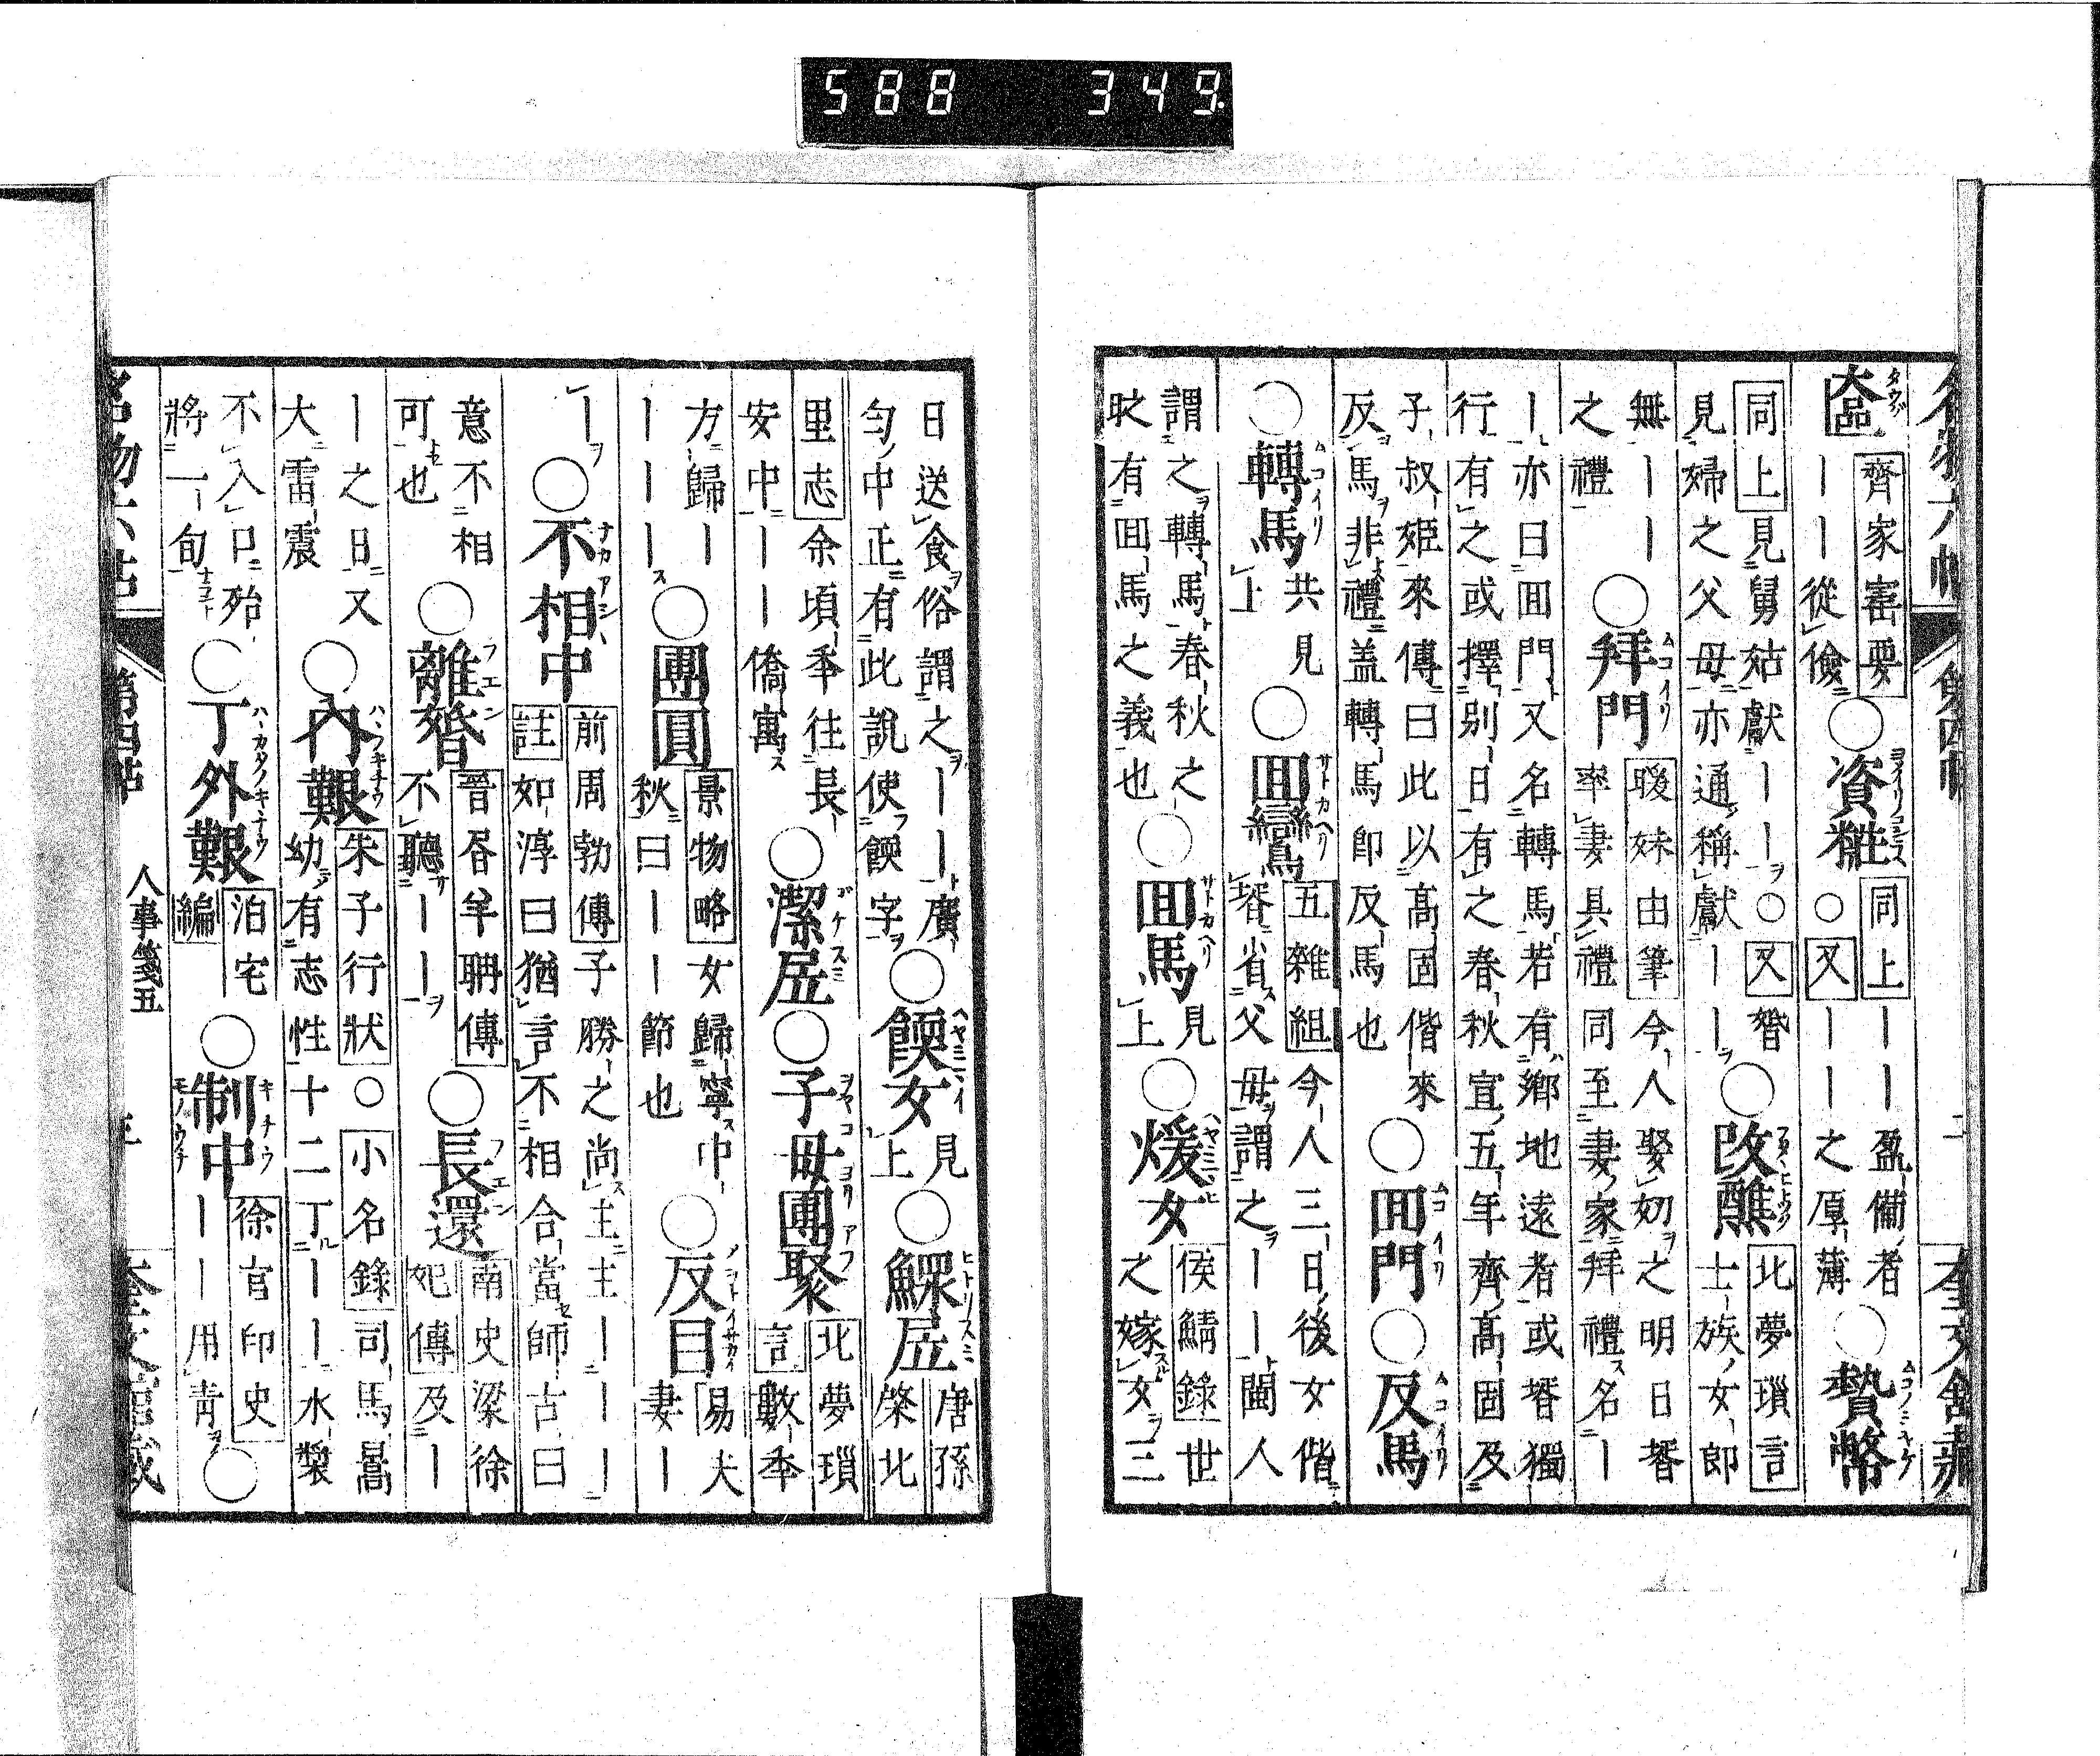 588 349
奩 齊家寶要
ーー從儉
○資糚 同上 ーー盈備者
○又 ーー之厚薄
○贄幣
同上 見舅姑獻ーー○又 婚
見婦之父母亦通稱獻ーー
○改醮 北夢瑣言
士族女郎
無ーー
之禮
○拜門 暖姝由筆 今人娶婦之明日壻
率妻具禮同至妻家拜禮名ー
ー亦曰回門又名轉馬若有鄉地遠者或壻獨
行有之或擇別日有之春秋宣五年齊高固及
子叔姬來傳曰此以高固偕來
反馬非禮蓋轉馬即反馬也
○回門○反馬
○轉馬 共見上
○回鸞 五雜組 今人三日後女偕
壻省父母謂之ーー閩人
謂之轉馬春秋之
時有回馬之義也
○回馬 見上
○煖女 侯鯖錄 世
之嫁女三
日送食俗謂之ーー廣
勻中正有此說使餪字
○餪女 見上
○鰥居 唐孫
棨北
里志 余頃年往長
安中ーー僑寓
○潔居○子母團聚 北夢瑣
言 數年
方歸ー
ーーー
○團圓 景物略 女歸寧中
秋曰ーー節也
○反目 易 夫
妻ー
ー
○不相中 前周勃傳 子勝之尚主主ーー
註 如淳曰猶言不相合當師古曰
意不相
可也
○離婚 晉書羊聃傳
不聽ーー
○長還 南史梁徐
妃傳 及ー
ー之日又
大雷震
○內艱 朱子行狀○小名錄 司馬暠
幼有志性十二丁ーー水漿
不入口殆
將一旬
○丁外艱 泊宅
編
○制中 徐官印史
ーーー用青
○
名物六帖 第四帖 人事箋五